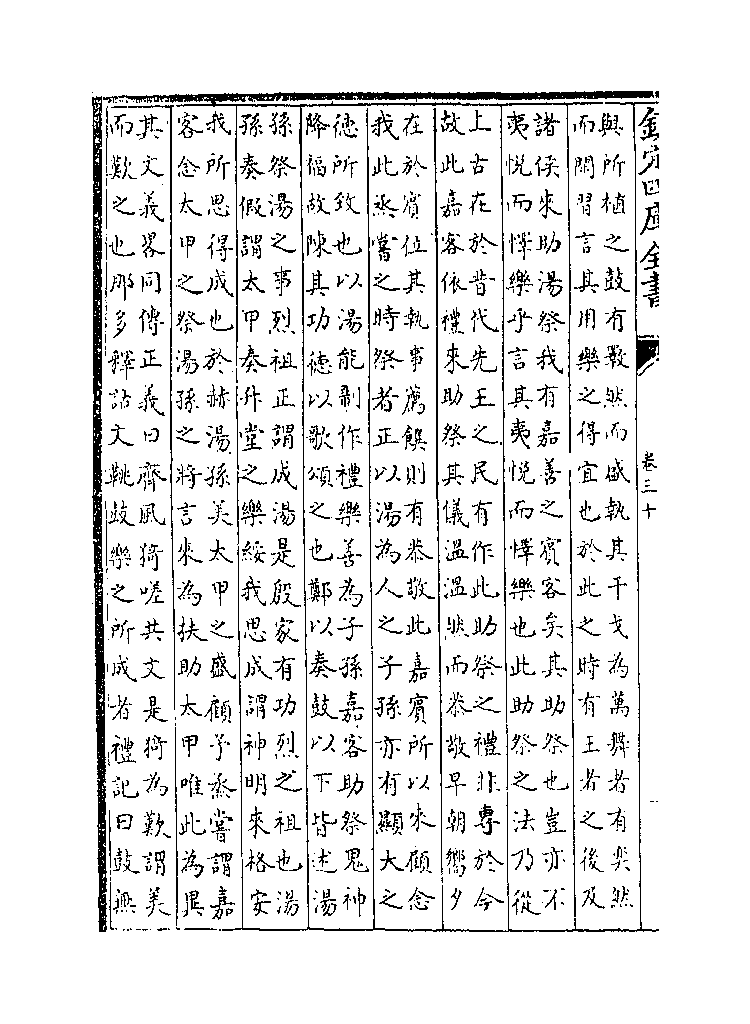 欽定四庫全書
卷三十
與所植之鼓有斁然而盛執其干戈為萬舞者有奕然
而閑習言其用樂之得宜也於此之時有王者之後及
諸侯來助湯祭我有嘉善之賔客矣其助祭也豈亦不
夷悅而懌樂乎言其夷悅而懌樂也此助祭之法乃從
上古在於昔代先王之民有作此助祭之禮非專於今
故此嘉客依禮來助祭其儀溫溫然而恭敬早朝嚮夕
在於賔位其執事薦饌則有恭敬此嘉賔所以來顧念
我此烝嘗之時祭者正以湯為人之子孫亦有顯大之
德所致也以湯能制作禮樂善為子孫嘉客助祭鬼神
降福故陳其功德以歌頌之也鄭以奏鼓以下皆述湯
孫祭湯之事烈祖正謂成湯是殷家有功烈之祖也湯
孫奏假謂太甲奏升堂之樂綏我思成謂神明來格安
我所思得成也於赫湯孫美太甲之盛顧予烝嘗謂嘉
客念太甲之祭湯孫之將言來為扶助太甲唯此為異
其文義畧同傳正義曰齊風猗嗟共文是猗為歎謂美
而歎之也那多釋詁文鞉鼓樂之所成者禮記曰鼓無